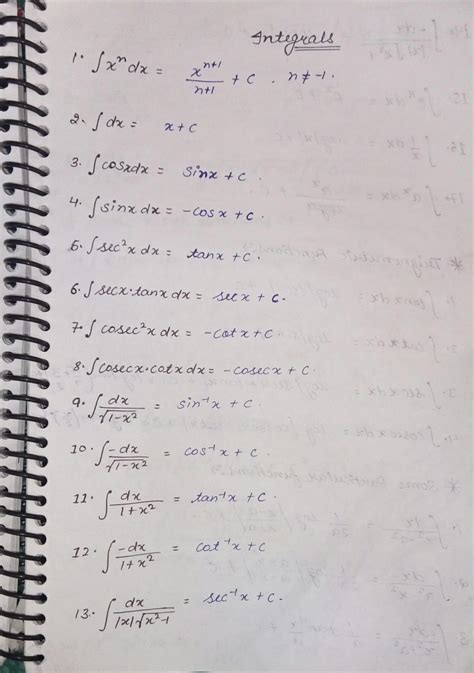 Integrals
1. ∫xⁿ dx = xⁿ⁺¹/n+1 + c , n ≠ -1.
2. ∫dx = x + c
3. ∫cosx dx = sinx + c.
4. ∫sinx dx = -cosx + c.
5. ∫sec²x dx = tanx + c.
6. ∫secx·tanx dx = secx + c.
7. ∫cosec²x dx = -cotx + c
8. ∫cosecx·cotx dx = -cosecx + c.
9. ∫dx/√1-x² = sin⁻¹x + c.
10. ∫-dx/√1-x² = cos⁻¹x + c.
11. ∫dx/1+x² = tan⁻¹x + c
12. ∫-dx/1+x² = cot⁻¹x + c
13. ∫dx/|x|√x²-1 = sec⁻¹x + c.